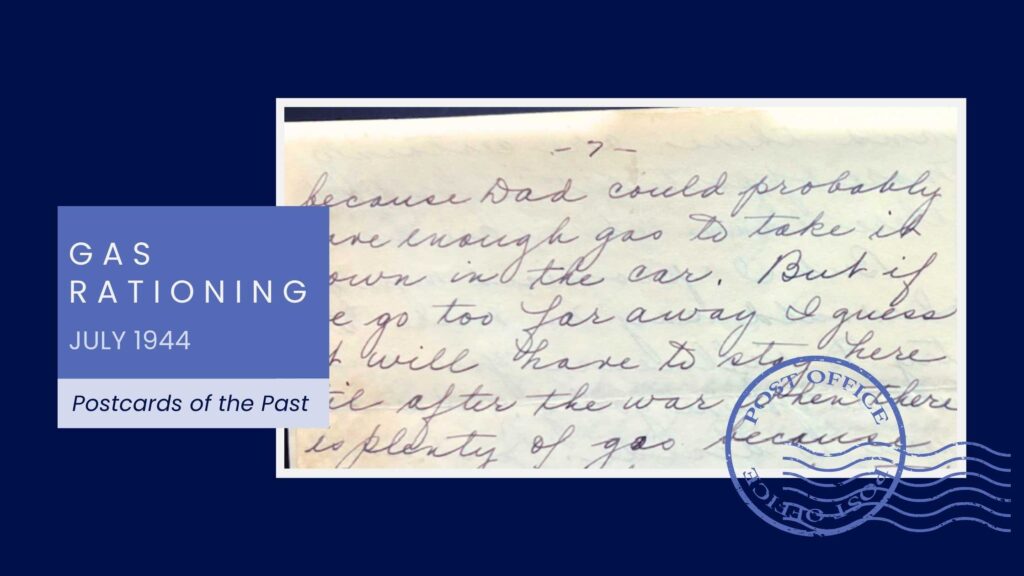 GAS
RATIONING
JULY 1944
Postcards of the Past
-7-
because Dad could probably
enough gas to take it
own in the car. But if
e go too far away I guess
t will have to stay here
til after the war when there
is plenty of gas because
POST OFFICE
POST OFFICE